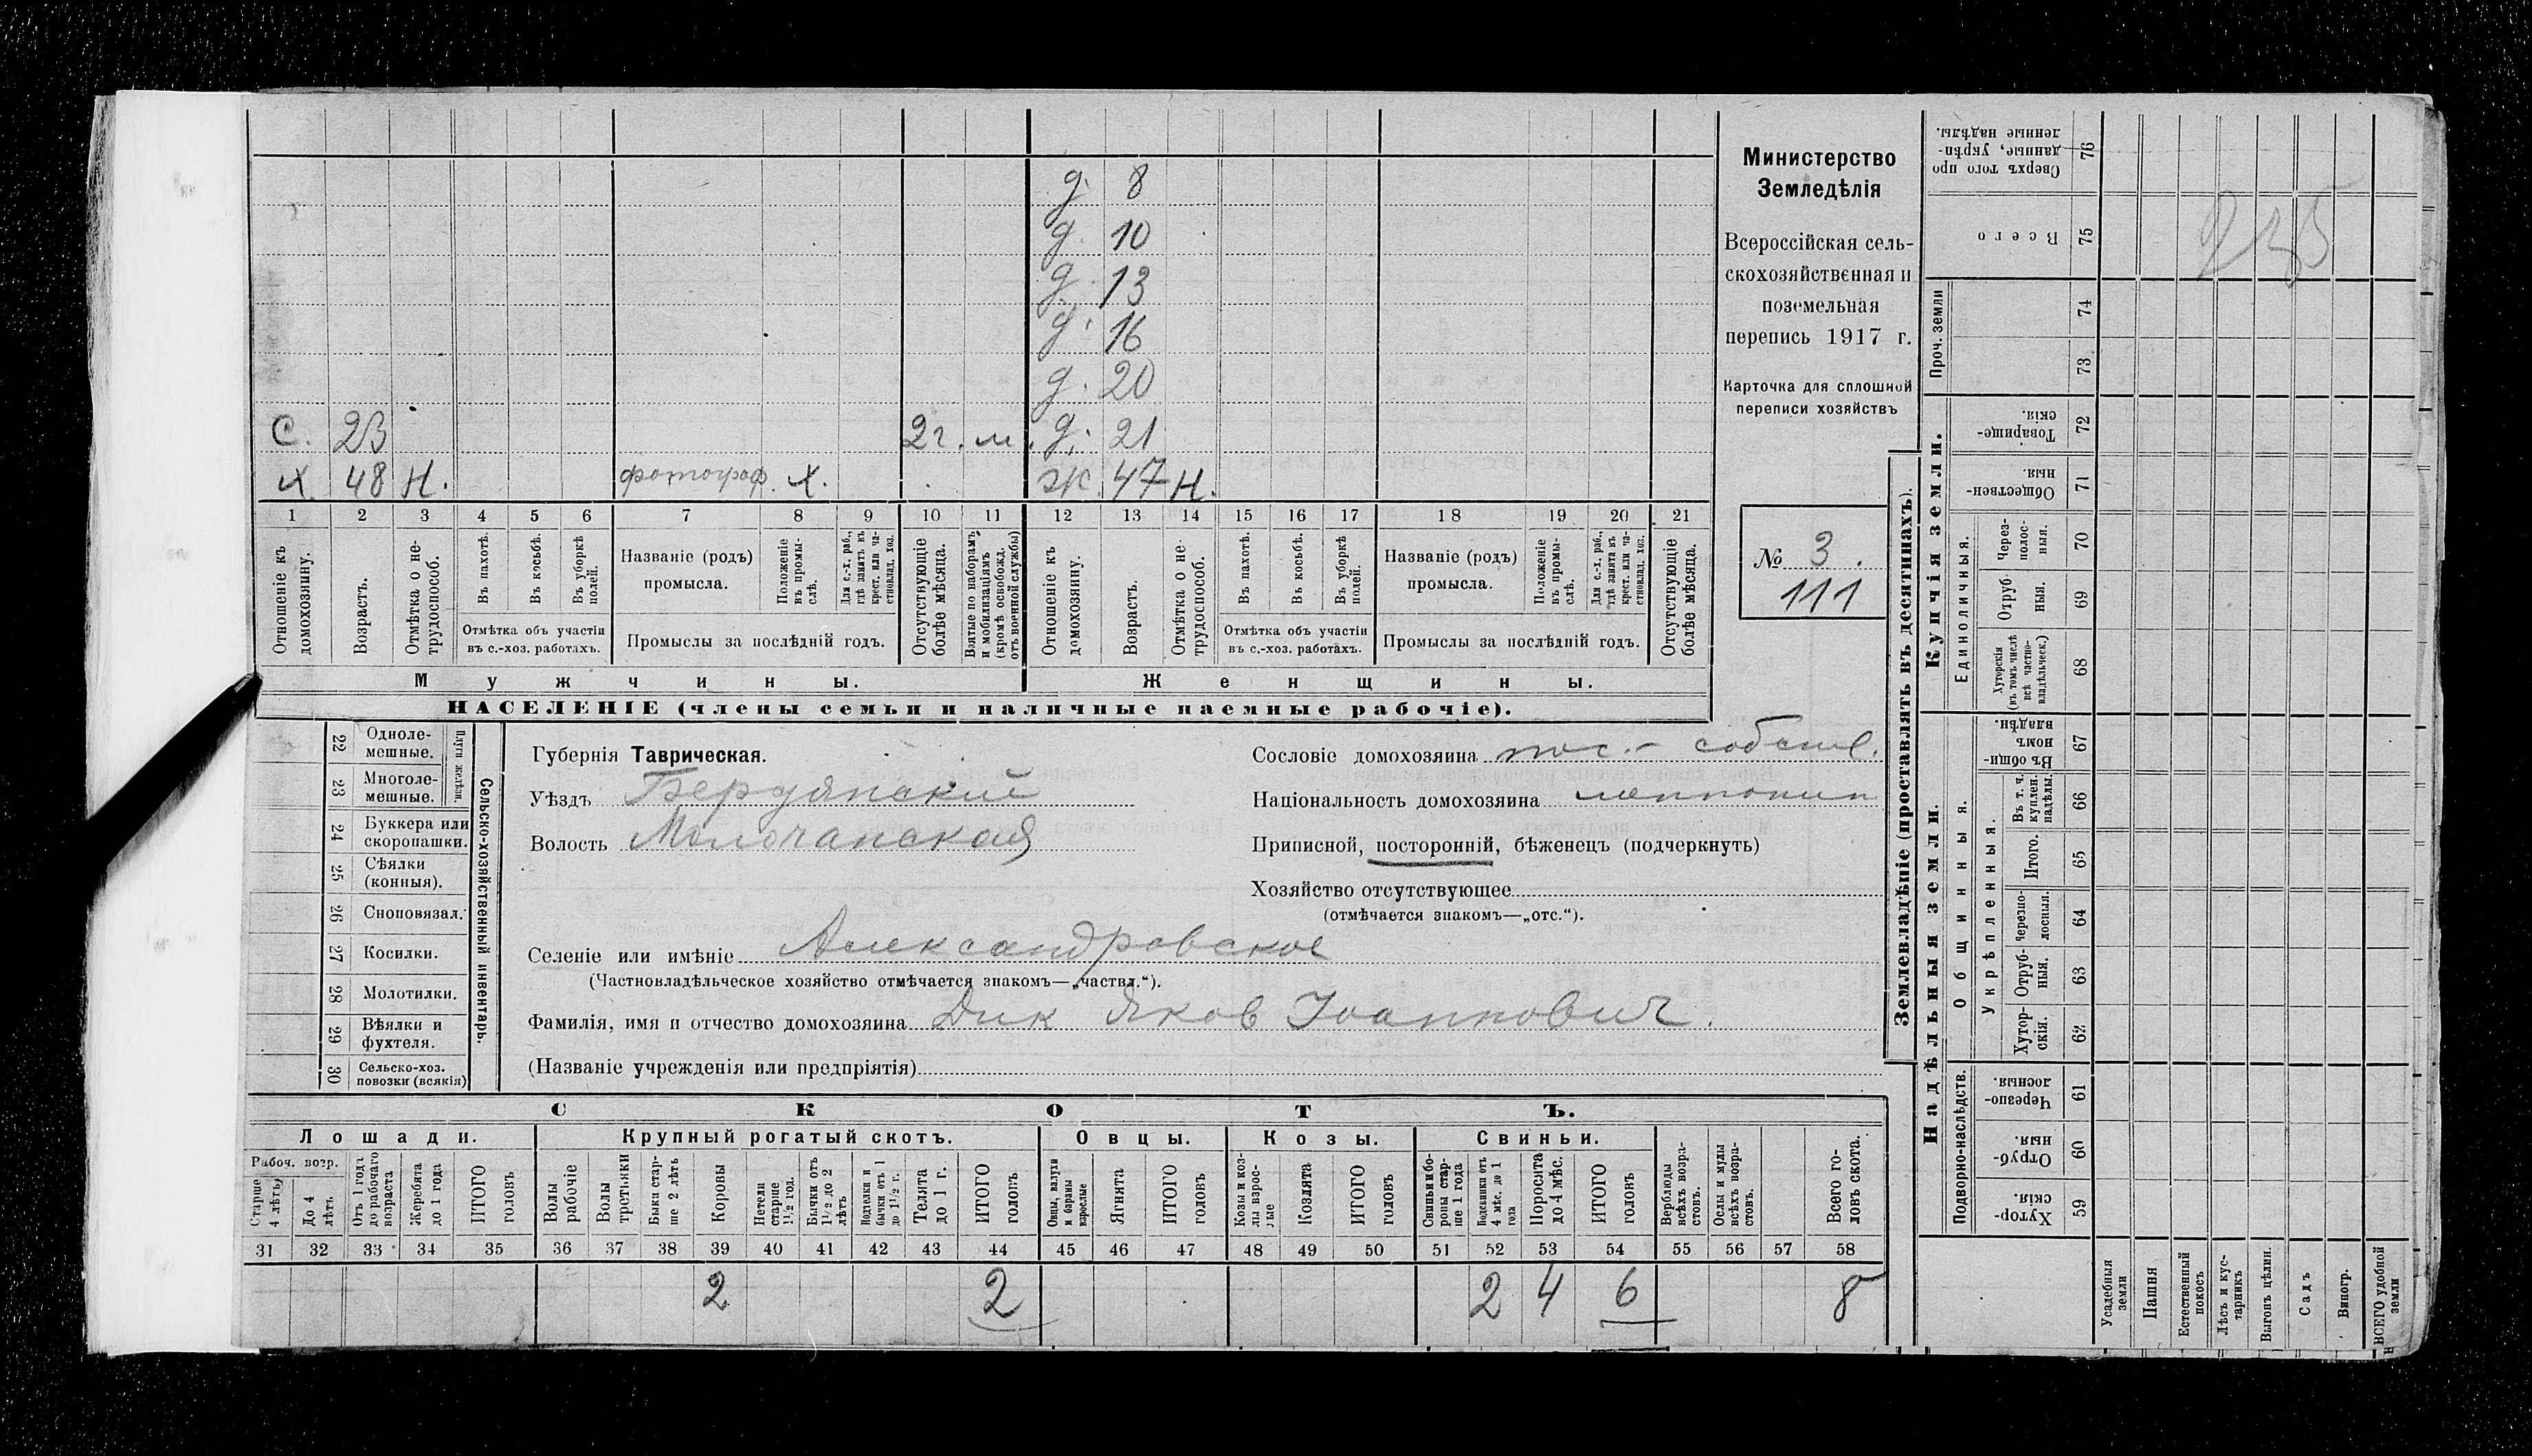 д. 8
д. 10
д. 13
д. 16
д. 20
С. 23 2 г. м. д. 21
х 48 Н. фотограф. х. Ж. 47 Н.
1 2 3 4 5 6 7 8 9 10 11 12 13 14 15 16 17 18 19 20 21
Отношеніе къ домохозяину.
Возрастъ.
Отмѣтка о не-трудоспособ.
Въ пахотѣ.
Въ косьбѣ.
Въ уборкѣ полей.
Отмѣтка объ участіи
въ с.-хоз. работахъ.
Названіе (родъ)
промысла.
Положеніе въ промы-слѣ.
Для с.-х. раб., гдѣ занятъ въ крест. или ча-стновлад. хоз.
Промыслы за послѣдній годъ.
Отсутствующіе болѣе мѣсяца.
Взятые по наборамъ и мобилизаціямъ (кромѣ освобожд. отъ военной службы)
Отношеніе къ домохозяину.
Возрастъ.
Отмѣтка о не-трудоспособ.
Въ пахотѣ.
Въ косьбѣ.
Въ уборкѣ полей.
Отмѣтка объ участіи
въ с.-хоз. работахъ.
Названіе (родъ)
промысла.
Положеніе въ промы-слѣ.
Для с.-х. раб., гдѣ занята въ крест. или ча-стновлад. хоз.
Промыслы за послѣдній годъ.
Отсутствующіе болѣе мѣсяца.
Мужчины.
Женщины.
НАСЕЛЕНІЕ (члены семьи и наличные наемные рабочіе).
Министерство
Земледѣлія
Всероссійская сель-
скохозяйственная и
поземельная
перепись 1917 г.
Карточка для сплошной
переписи хозяйствъ
№ 3.
111
22 Одноле-мешные.
23 Многоле-мешные.
Плуги желѣзн.
24 Буккера или скоропашки.
25 Сѣялки (конныя).
26 Сноповязал.
27 Косилки.
28 Молотилки.
29 Вѣялки и фухтеля.
30 Сельско-хоз. повозки (всякія)
Сельско-хозяйственный инвентарь.
Губернія Таврическая.
Уѣздъ Бердянский
Волость Молочанская
Сословіе домохозяина пос.- собств.
Національность домохозяина меннонит
Приписной, посторонній, бѣженецъ (подчеркнуть)
Хозяйство отсутствующее
(отмѣчается знакомъ—„отс.“).
Селеніе или имѣніе Александровское
(Частновладѣльческое хозяйство отмѣчается знакомъ—„частвл.“).
Фамилія, имя и отчество домохозяина Дик Яков Іоаннович.
(Названіе учрежденія или предпріятія)
СКОТЪ.
Лошади. Крупный рогатый скотъ. Овцы. Козы. Свиньи.
Рабоч. возр.
Старше 4 лѣтъ
До 4 лѣтъ.
Отъ 1 года до рабочаго возраста
Жеребята до 1 года
ИТОГО головъ
Волы рабочіе
Волы третьяки
Быки стар-ше 2 лѣтъ
Коровы
Нетели старше 1½ год.
Бычки отъ 1½ до 2 лѣтъ
Подтелки и бычки отъ 1 до 1½ г.
Телята до 1 г.
ИТОГО головъ
Овцы, валухи и бараны взрослые
Ягнята
ИТОГО головъ
Козы и коз-лы взрос-лые
Козлята
ИТОГО головъ
Свиньи и бо-ровы стар-ше 1 года
Подсвинки отъ 4 мѣс. до 1 года
Поросята до 4 мѣс.
ИТОГО головъ
Верблюды всѣхъ возра-стовъ.
Ослы и мулы всѣхъ возра-стовъ.
Всего го-ловъ скота.
31 32 33 34 35 36 37 38 39 40 41 42 43 44 45 46 47 48 49 50 51 52 53 54 55 56 57 58
2 2 2 4 6 8
Землевладѣніе (проставлять въ десятинахъ).
Сверхъ того про-данные, укрѣп-ленные надѣлы. 76
Всего 75
Проч. земли
74
73
Купчія земли.
Товарище-скія. 72
Обществен-ныя. 71
Единоличныя.
Через-полос-ныя. 70
Отруб-ныя. 69
Хуторскія (въ томъ числѣ всѣ частно-владѣльческ.) 68
Надѣльныя земли.
Общинныя.
Въ общин-номъ владѣн. 67
Укрѣпленныя.
Въ т. ч. куплен. надѣлы. 66
Итого. 65
Черезпо-лосныя. 64
Отруб-ныя. 63
Хутор-скія. 62
Подворно-наслѣдств.
Черезпо-лосныя. 61
Отруб-ныя. 60
Хутор-скія. 59
Усадебныя земли
Пашня
Естественный покосъ
Лѣсъ и кус-тарникъ
Выгонъ цѣлин.
Садъ
Виногр.
ВСЕГО удобной земли